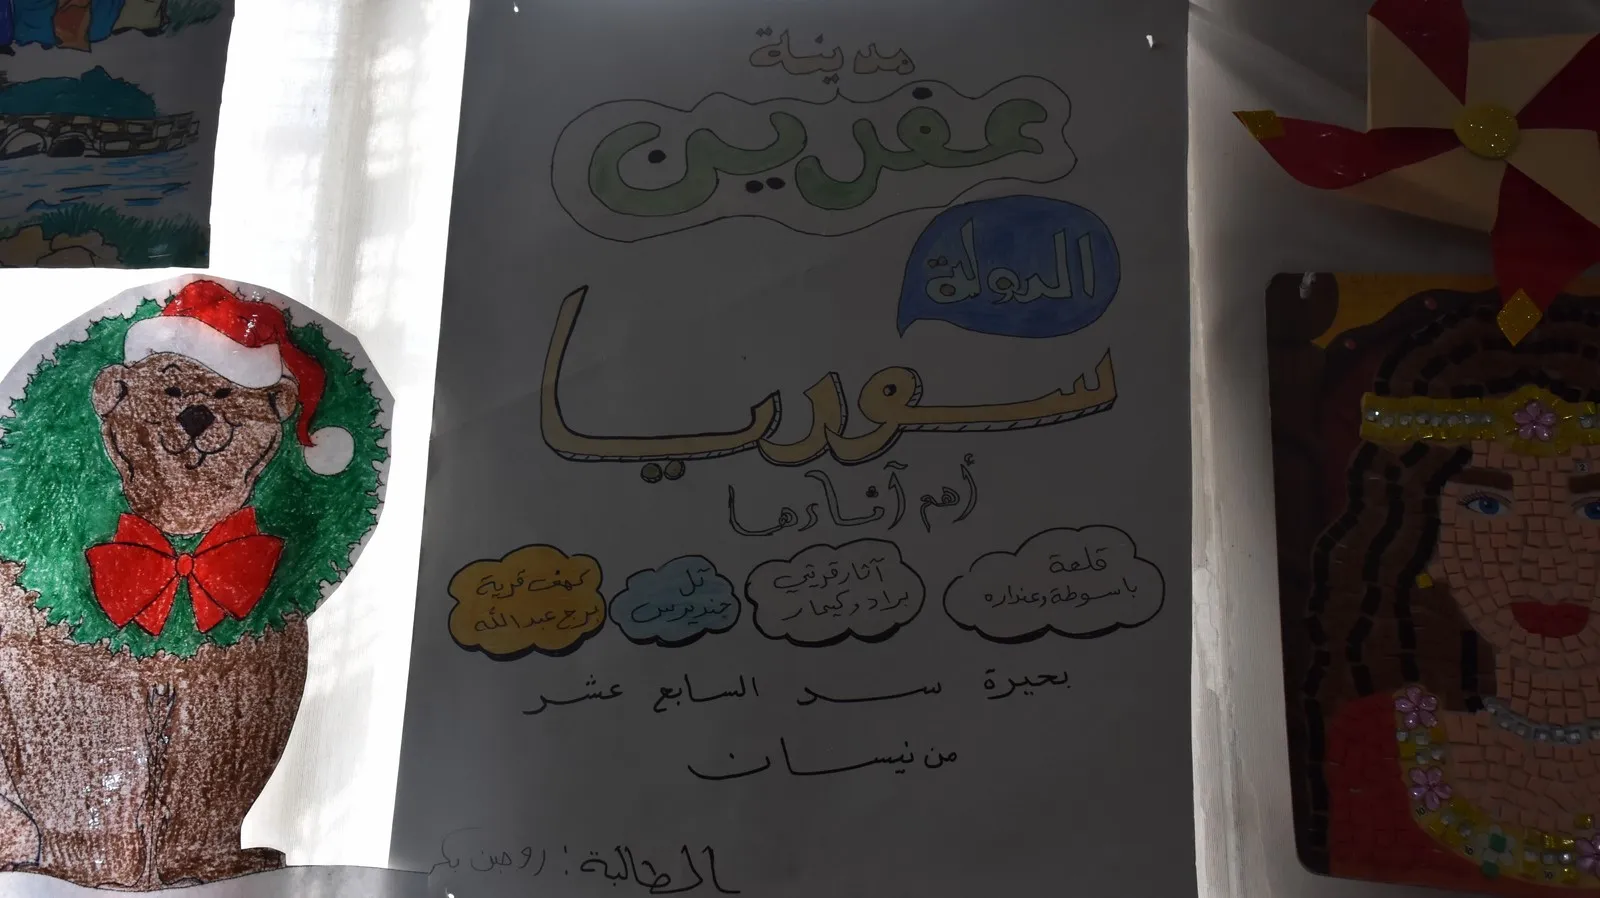 مدينة
عفرين
الدولة
سوريا
أهم آثارها
قلعة
باسوطة وعنداره
آثار قريتي
براد وكيمار
تل
جنديرس
كهف قرية
برج عبدالله
بحيرة سد السابع عشر
من نيسان
الطالبة: روجين بكر